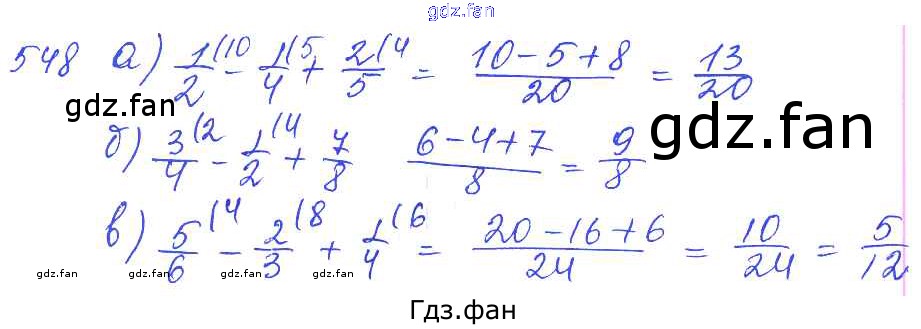 gdz.fan
548 а) 1/2 (10 - 1/4 (5 + 2/5 (4 = (10 - 5 + 8)/20 = 13/20
gdz.fan
gdz.fan
б) 3/4 (2 - 1/2 (4 + 7/8 (6 - 4 + 7)/8 = 9/8
в) 5/6 (4 - 2/3 (8 + 1/4 (6 = (20 - 16 + 6)/24 = 10/24 = 5/12
gdz.fan gdz.fan gdz.fan gdz.fan gdz.fan gdz.fan
Гдз.фан